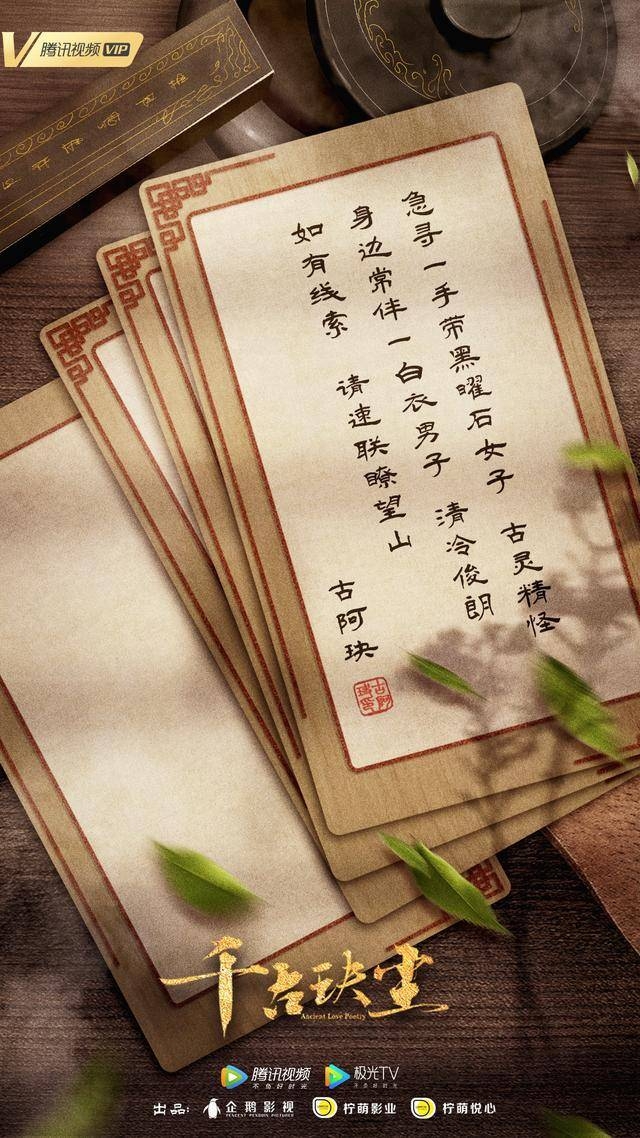 腾讯视频 VIP
急寻一手带黑曜石女子 古灵精怪
身边常伴一白衣男子 清冷俊朗
如有线索 请速联瞭望山
古阿玦
千古玦尘
Ancient Love Poetry
腾讯视频 极光TV
不负好时光 不负好时光
出品: 企鹅影视 柠萌影业 柠萌悦心
PENCENT PENGUIN PICTURES